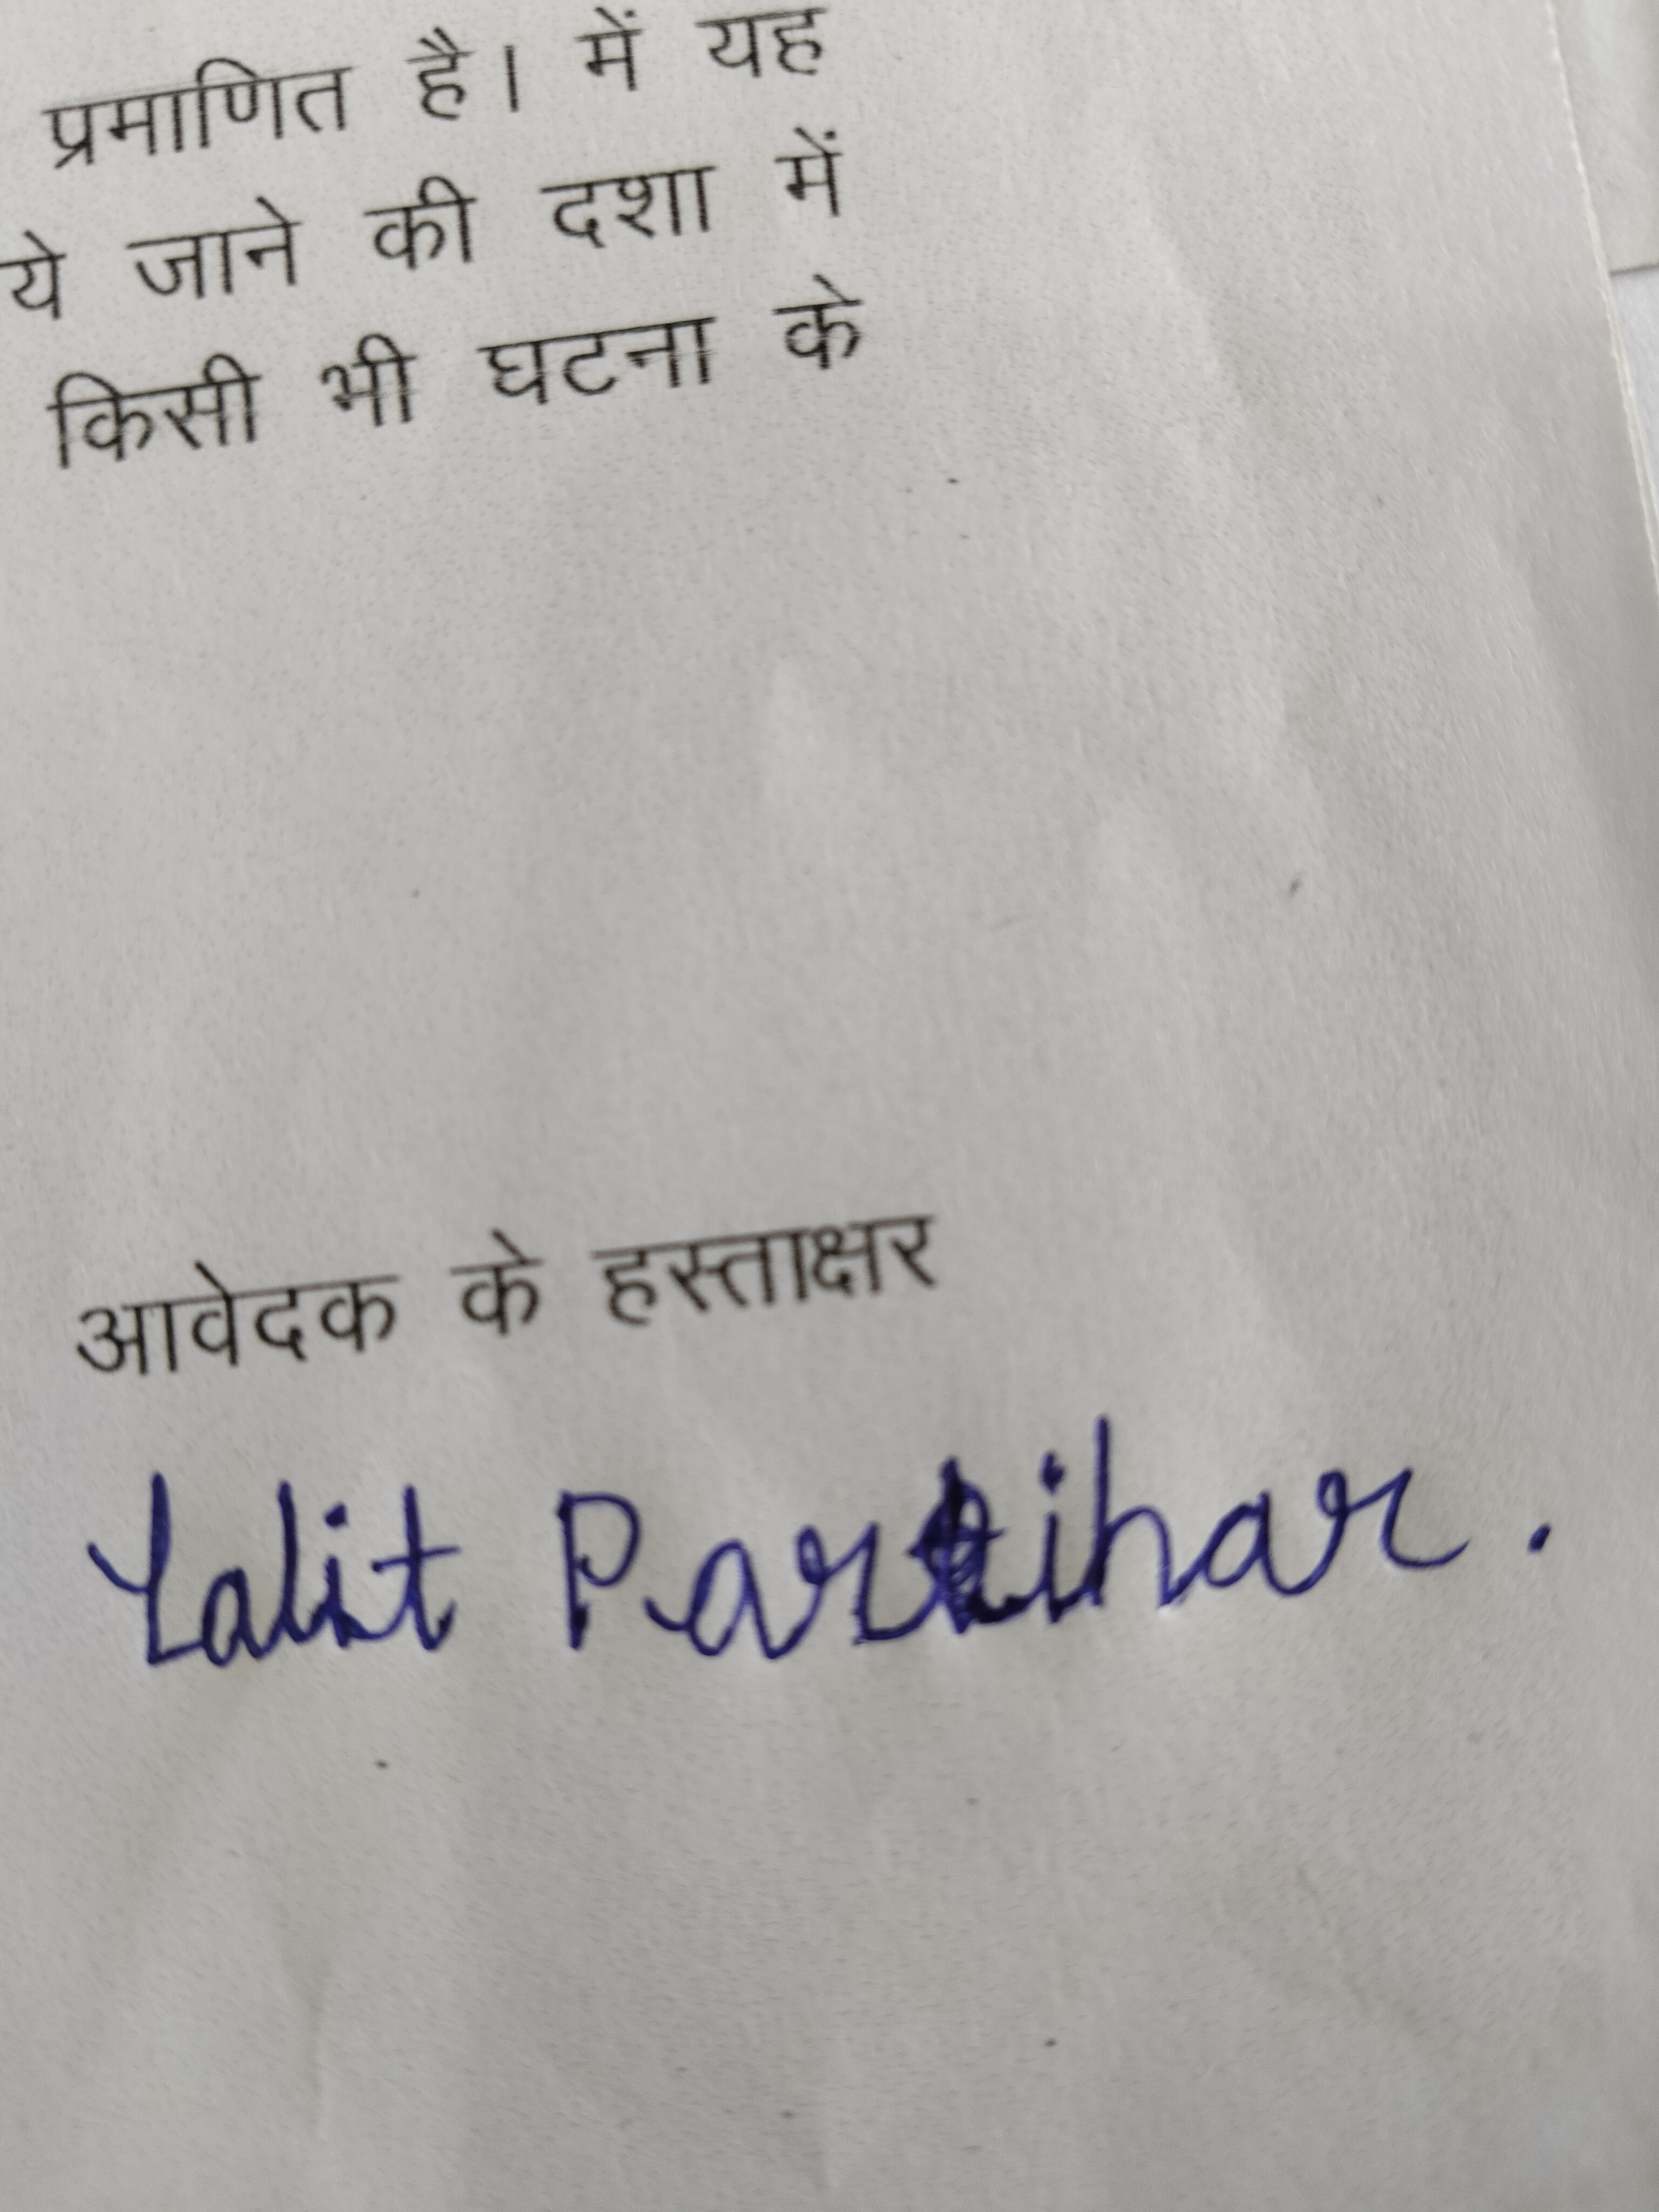 प्रमाणित है। में यह
ये जाने की दशा में
किसी भी घटना के
आवेदक के हस्ताक्षर
Lalit Parihar.